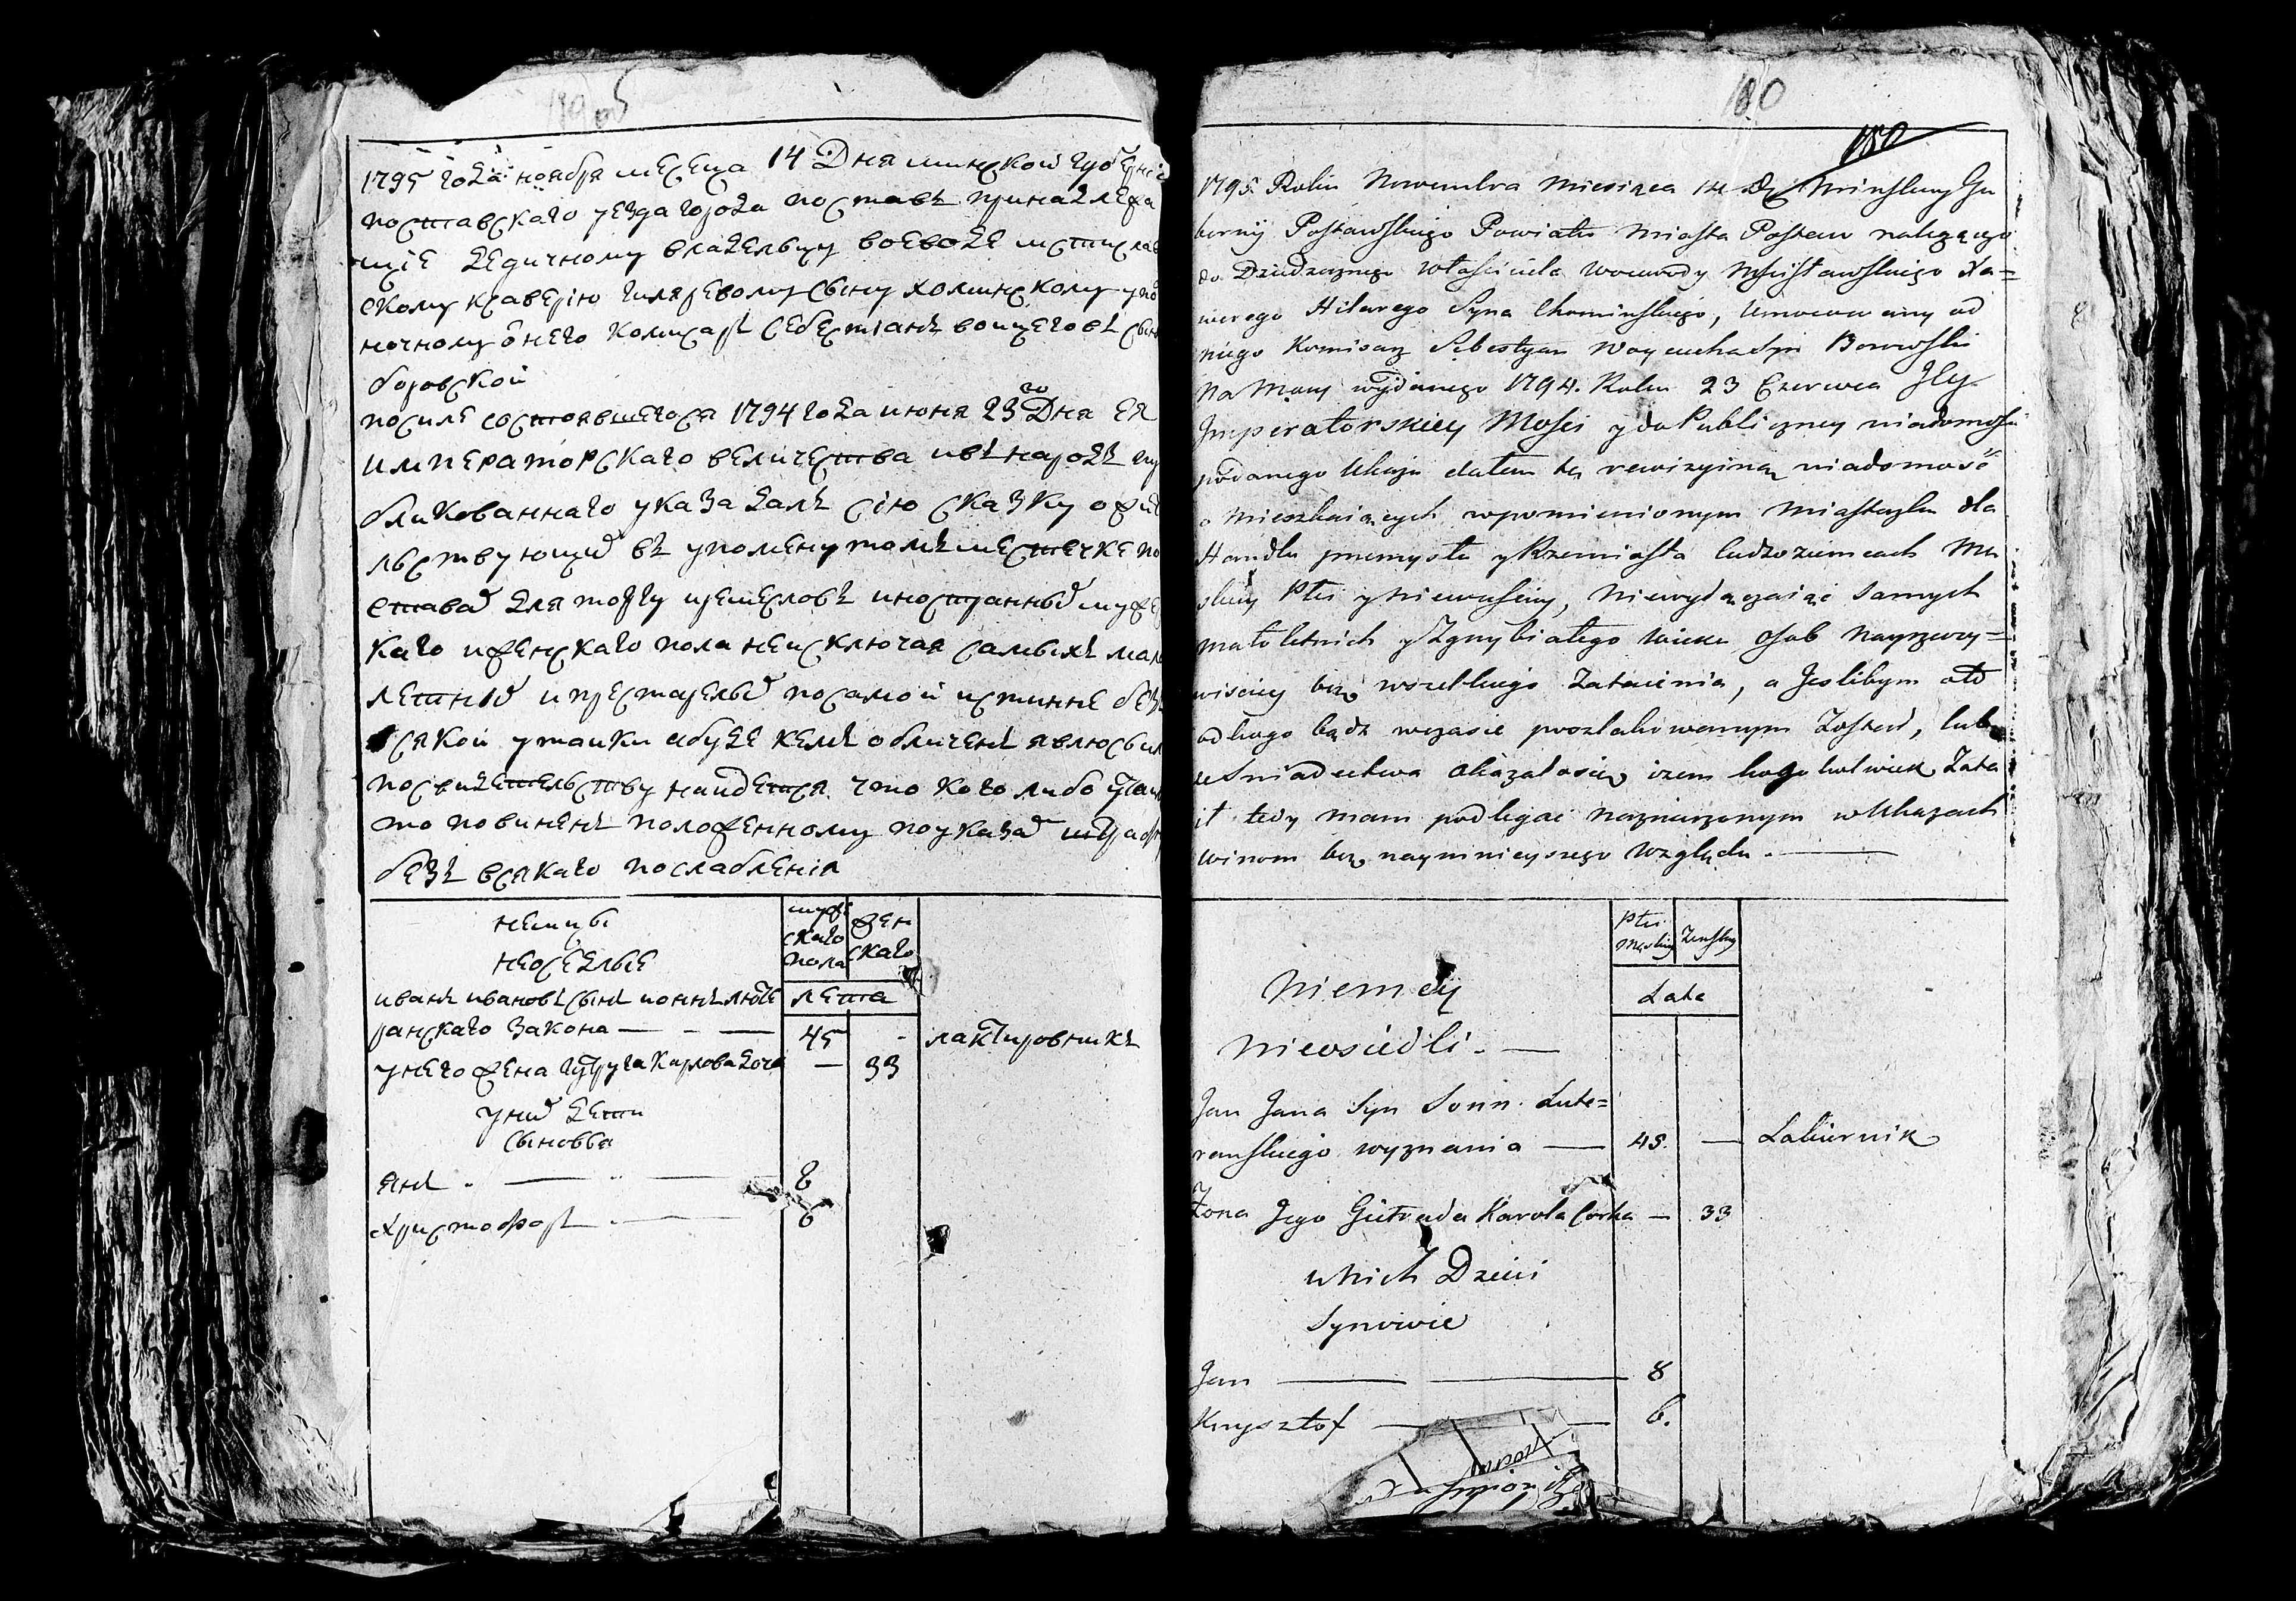 1795 года ноября месеца 14 Дня минской губерніе
поставскаго уезда города поставъ принадлежа
щіе дедичному владельцу воеводе мстисла
скому ксаверію гиляревому сыну хоминскому упо
мочному о него комисаръ себестіанъ войцеховъ сынъ
боровской
по силе состоявшегося 1794 года июня 23го Дня ея
императорскаго величества и въ народъ пу
бликованнаго указа далъ сію сказку о жите
льствующих въ упоменутомъ местечке по
ставах для торгу и ремесловъ иностранных муже
каго и женскаго пола не исключая самыхъ мало
летных и престарелых по самой истинне безъ
всякой утайки а буде кемъ обличенъ явлюсь или
по свидетельству найдется что кого либо утаил
то повиненъ положенному по указах штрафу
безъ всякаго послабленія
немцы
неоседлые
муже
скаго
пола
жен
скаго
лета
иванъ ивановъ сынъ лютe
ранскаго закона — 45 -
у него жена Карлова доча — 33
у них дети
сыновья
янъ . — 8
христофоръ . — 6
180
180
1795. Roku Nowembra Miesiąca 14 D. Minskiey Gu
bernij Postawskiego Powiatu Miasta Postaw należącego
do Dziedzicznego właściciela Woiewody Mścisławskiego Xa=
werego Hilarego Syna Chomińskiego, Umocowany od
niego Komisarz Sebestyan Woyciecha Syn Borowski
Na Mocy wydanego 1794. Roku 23 Czerwca Jey
Imperatorskiey Mości y do Publiczney wiadomości
podanego Ukazu dałem tę rewizyiną wiadomość
o Mieszkaiących wpomienionym Miasteczku dla
Handlu przemysłu y Rzemiosła cudzoziemcach Mę
skiey Płci y Niewieściey, Niewyłączaiąc samych
małoletnich y Zgrzybiałego wieku osob nayrzeczy=
wisciey bez wszelkiego Zataienia, a Jeslibym od
od kogo bądz wczasie poszlakowanym Został, lub
ze Swiadectwa okazałosię izem kogo kolwiek Zata
ił tedy mam podlegac naznaczonym w Ukazach
winom bez naymnieyszego Względu. —
Płci
Męskiey
Zenskiey
Lata
Niemcy
Nieosiedli. —
Jan Jana Syn Lute=
ranskiego wyznania — 45. —
Żona Jego Karola Corka — 33
u Nich Dzieci
Synowie
Jan — 8
Krzysztof — 6.